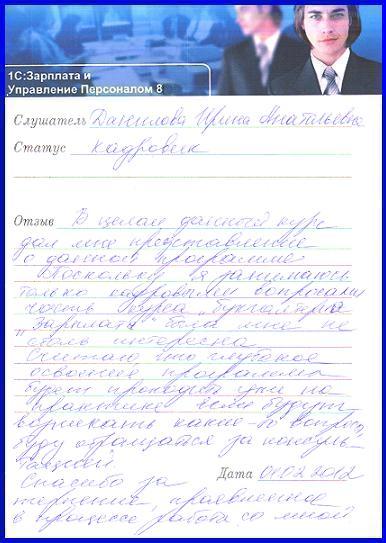 1С:Зарплата и
Управление Персоналом 8
Слушатель Данилова Ирина Анатольевна
Статус кадровик
Отзыв В целом данный курс
дал мне представление
о данной программе.
Поскольку я занимаюсь
только кадровыми вопросами
часть курса „бухгалтерия
„Зарплаты" была мне не
столь интересна
Считаю что глубокое
освоение программы
будет проходить уже на
практике если будут
возникать какие-то вопросы,
буду обращаться за консуль-
тацией
Дата 01.02.2012
Спасибо за
терпение, проявленное
в процессе работы со мной